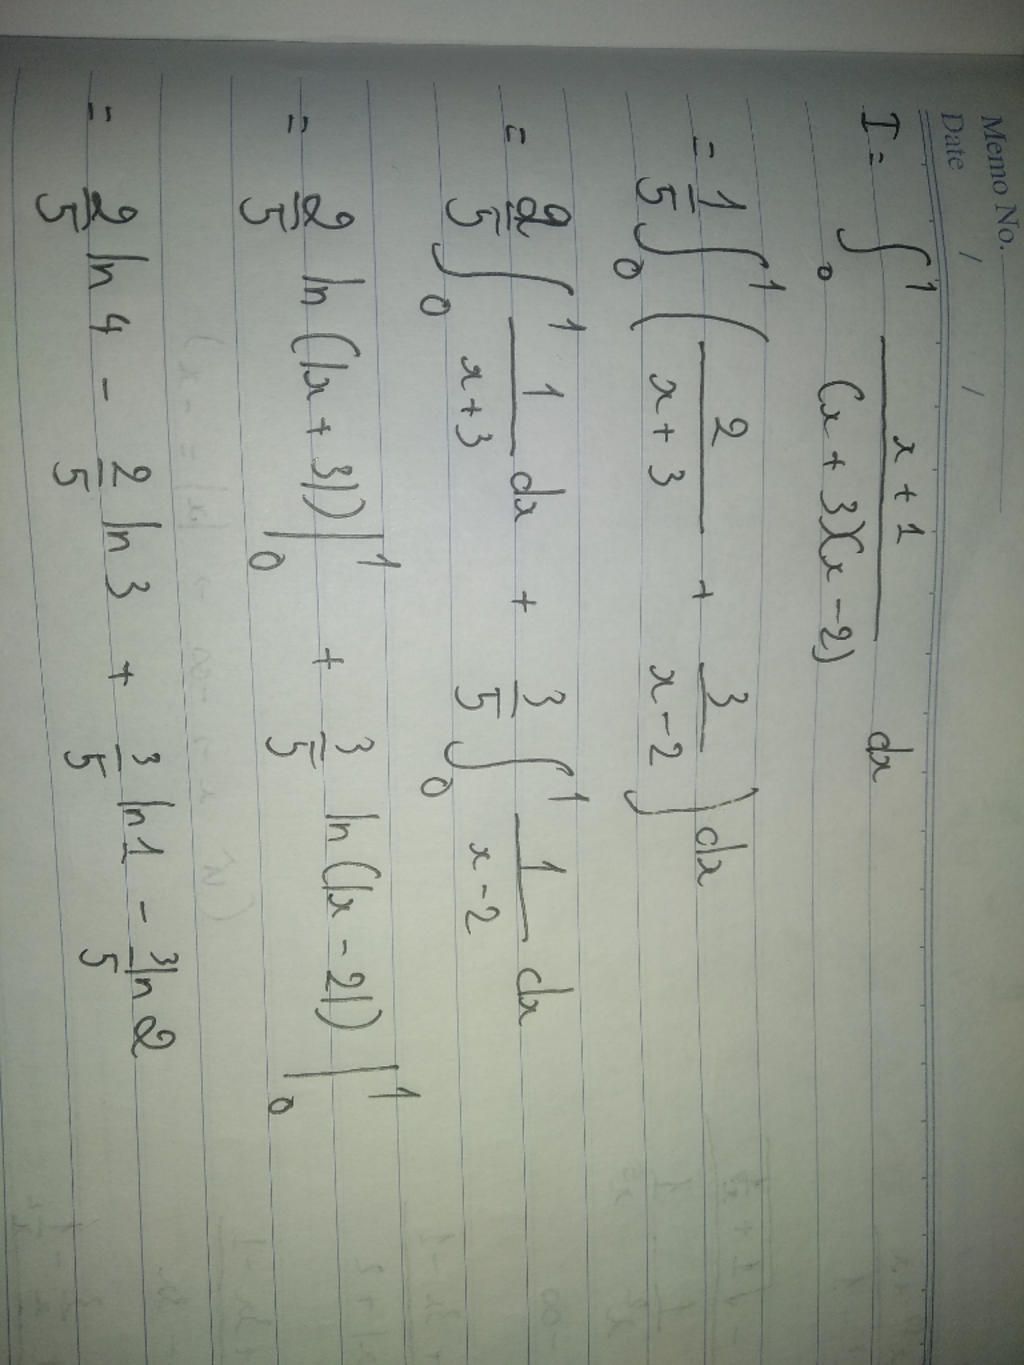 Memo No.
Date / /
I = ∫₀¹ (x + 1)/((x + 3)(x - 2)) dx
= 1/5 ∫₀¹ (2/(x + 3) + 3/(x - 2)) dx
= 2/5 ∫₀¹ 1/(x + 3) dx + 3/5 ∫₀¹ 1/(x - 2) dx
= 2/5 ln(|x + 3|)|₀¹ + 3/5 ln(|x - 2|)|₀¹
= 2/5 ln 4 - 2/5 ln 3 + 3/5 ln 1 - 3/5 ln 2